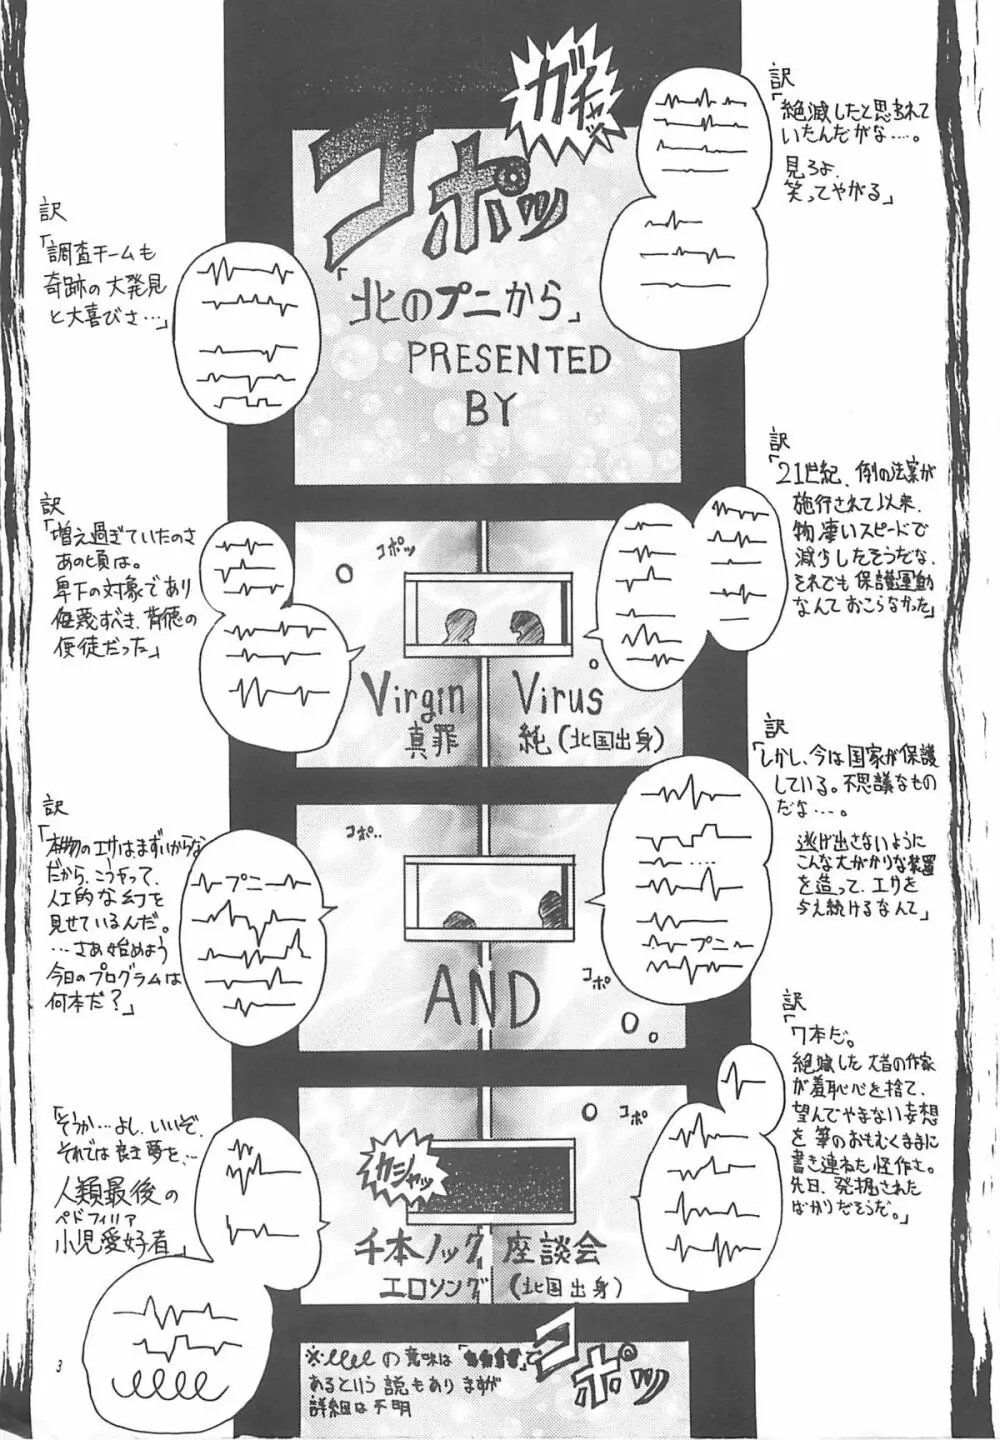 ガチャッ
コポッ
訳
「絶滅したと思われて
いたんだがな‥‥。
見ろよ、
笑ってやがる」
訳
「調査チームも
奇跡の大発見
と大喜びさ…」
「北のプニから」
PRESENTED
BY
訳
「21世紀、例の法案が
施行されて以来、
物凄いスピードで
減少したそうだな、
それでも保護運動
なんておこらなかった」
訳
「増え過ぎていたのさ
あの頃は。
卑下の対象であり
侮蔑すべき、背徳の
使徒だった」
コポッ
Virgin Virus
真罪 純(北国出身)
訳
「しかし、今は国家が保護
している。不思議なもの
だな‥‥。
逃げ出さないように
こんな大がかりな装置
を造って、エサを
与え続けるなんて」
訳
「本物のエサは、まずいからな
だから、こうやって、
人工的な幻を
見せているんだ。
…さあ始めよう
今日のプログラムは
何本だ?」
コポ‥
プニー
プニー
コポ
AND
訳
「7本だ。
絶滅した大昔の作家
が羞恥心を捨て、
望んでやまない妄想
を筆のおもむくままに
書き連ねた怪作さ。
先日、発掘された
ばかりだそうだ。」
「そうか…よし、いいぞ、
それでは良き夢を、…
人類最後の
ペドフィリア
小児愛好者」
コポ
カシャッ
千本ノック 座談会
エロソング (北国出身)
コポッ
※ の意味は「
あるという説もありますが
詳細は不明
3